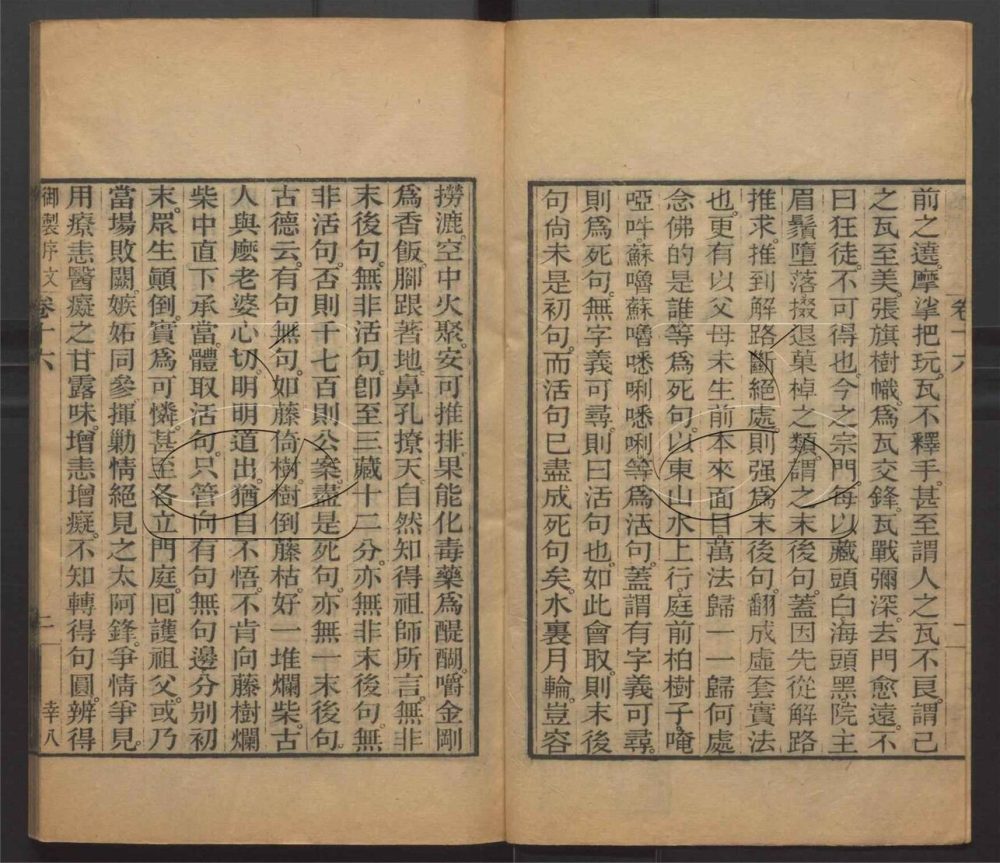 卷十六
二
前之邊摩挲把玩瓦不釋手甚至謂人之瓦不良謂己
之瓦至美張旗樹幟爲瓦交鋒瓦戰彌深去門愈遠不
曰狂徒不可得也今之宗門每以藏頭白海頭黑院主
眉鬚墮落掇退菓棹之類謂之末後句蓋因先從解路
推求推到解路斷絕處則强爲末後句翻成虛套實法
也更有以父母未生前本來面目萬法歸一一歸何處
念佛的是誰等爲死句以東山水上行庭前柏樹子唵
啞吽蘇嚕蘇嚕悉唎悉唎等爲活句蓋謂有字義可尋
則爲死句無字義可尋則曰活句也如此會取則末後
句尙未是初句而活句已盡成死句矣水裏月輪豈容
撈漉空中火聚安可推排果能化毒藥爲醍醐嚼金剛
爲香飯腳跟著地鼻孔撩天自然知得祖師所言無非
末後句無非活句卽至三藏十二分亦無非末後句無
非活句否則千七百則公案盡是死句亦無一末後句
古德云有句無句如藤倚樹樹倒藤枯好一堆爛柴古
人與麽老婆心切明明道出猶自不悟不肯向藤樹爛
柴中直下承當體取活句只管向有句無句邊分别初
末眾生顚倒實爲可憐甚至各立門庭囘護祖父或乃
當場敗闕嫉妬同參揮勦情絕見之太阿鋒爭情爭見
用療恚醫癡之甘露味增恚增癡不知轉得句圓辨得
御製序文 卷十六
二
幸八